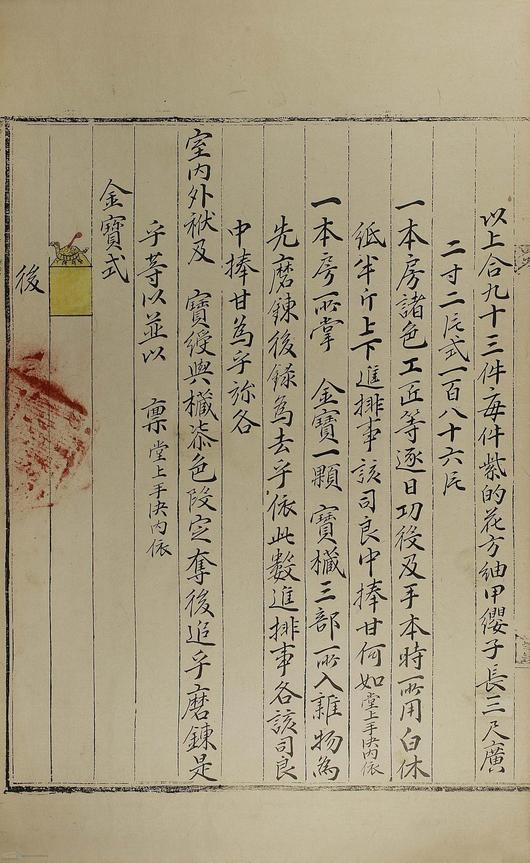 以上合九十三件每件紫的花方紬甲纓子長三尺廣
二寸二尺式一百八十六尺
一本房諸色工匠等逐日功役及手本時所用白休
紙半斤上下進排事該司良中捧甘何如堂上手决內依
一本房所掌 金寶一顆 寶樻三部所入雜物為
先磨鍊後錄為去乎依此數進排事各該司良
中捧甘為乎旀各
室內外袱及 寶綬與樻柒色段定奪後追乎磨鍊是
乎等以並以 稟 堂上手决內依
金寶式
後